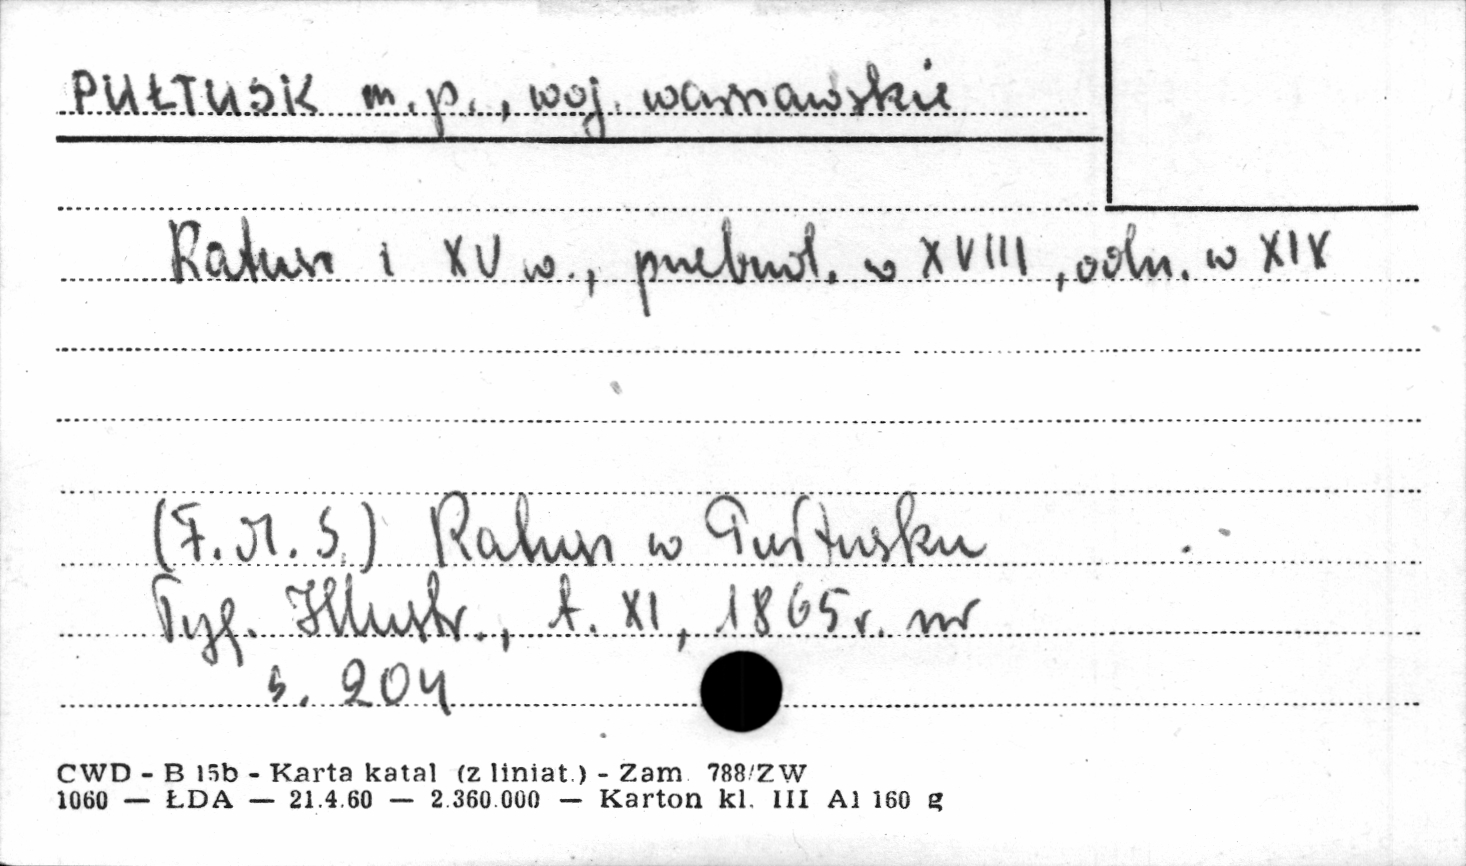 PUŁTUSK m.p., woj. warszawskie
Ratusz i XV w., przebud. w XVIII, odn. w XIX
(F. M. S.) Ratusz w Pułtusku
Tyg. Illustr., t. XI, 1865 r. nr
s. 204
CWD - B 15b - Karta katal (z liniat.) - Zam. 788/ZW
1060 — ŁDA — 21.4.60 — 2.360.000 — Karton kl. III A1 160 g